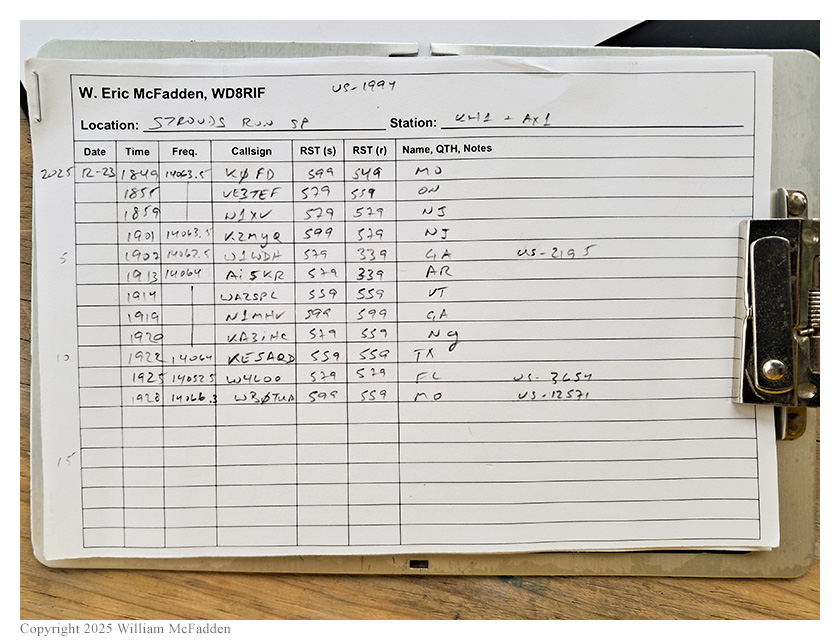 W. Eric McFadden, WD8RIF US-1994
Location: STROUDS RUN SP Station: KH1 + AX1
Date Time Freq. Callsign RST (s) RST (r) Name, QTH, Notes
2025 12-23 1849 14063.5 KØFD 599 549 MO
1855 VE3TEF 579 559 ON
1859 N1XV 579 579 NJ
1901 14063.5 K2MYQ 599 579 NJ
5 1907 14062.5 W1WDH 579 339 GA US-2195
1913 14064 AI5KR 579 339 AR
1917 WA2SPL 559 559 VT
1919 N1MHV 599 599 GA
1920 KA3IHC 579 559
10 1922 14064 KE5AQD 559 559 TX
1925 14052.5 W4LOO 579 579 FL US-3654
1928 14066.3 WBØTUA 599 559 MO US-12571
15
Copyright 2025 William McFadden